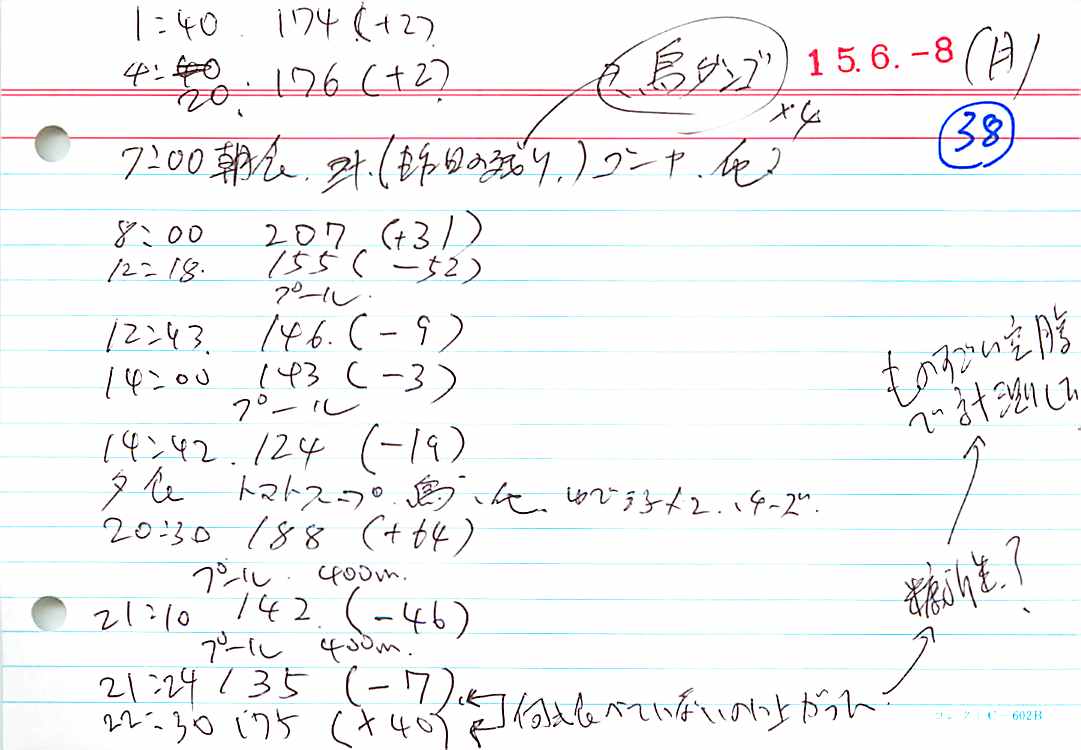 1:40 174 (+2)
4:20 176 (+2)
鳥ダンゴ ×4
15.6.-8 (月)
38
7:00 朝食、(昨日の残り、) ゴーヤ、他
8:00 207 (+31)
12:18 155 (-52)
プール
12:43 146 (-9)
14:00 143 (-3)
プール
14:42 124 (-19)
夕食 トマトスープ、鳥、他、ゆで子×2、
20:30 188 (+64)
プール 400m
21:10 142 (-46)
プール 400m
21:24 135 (-7)
22:30 175 (+40)
何も食べていないのに上がった
糖新生?
ものすごい空腹
で計測して
コクヨ C-602B